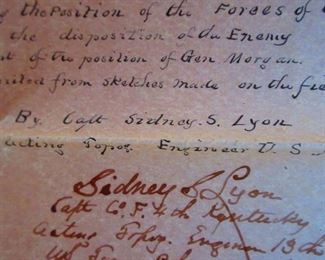 the Position of the Forces of
the disposition of the Enemy
of the position of Gen Morgan.
from sketches made on the fie
By Capt Sidney. S. Lyon
acting Topog. Engineer U. S.
Sidney S Lyon
Capt Co. F. 4th Kentucky
acting Topog. Engineer 13th